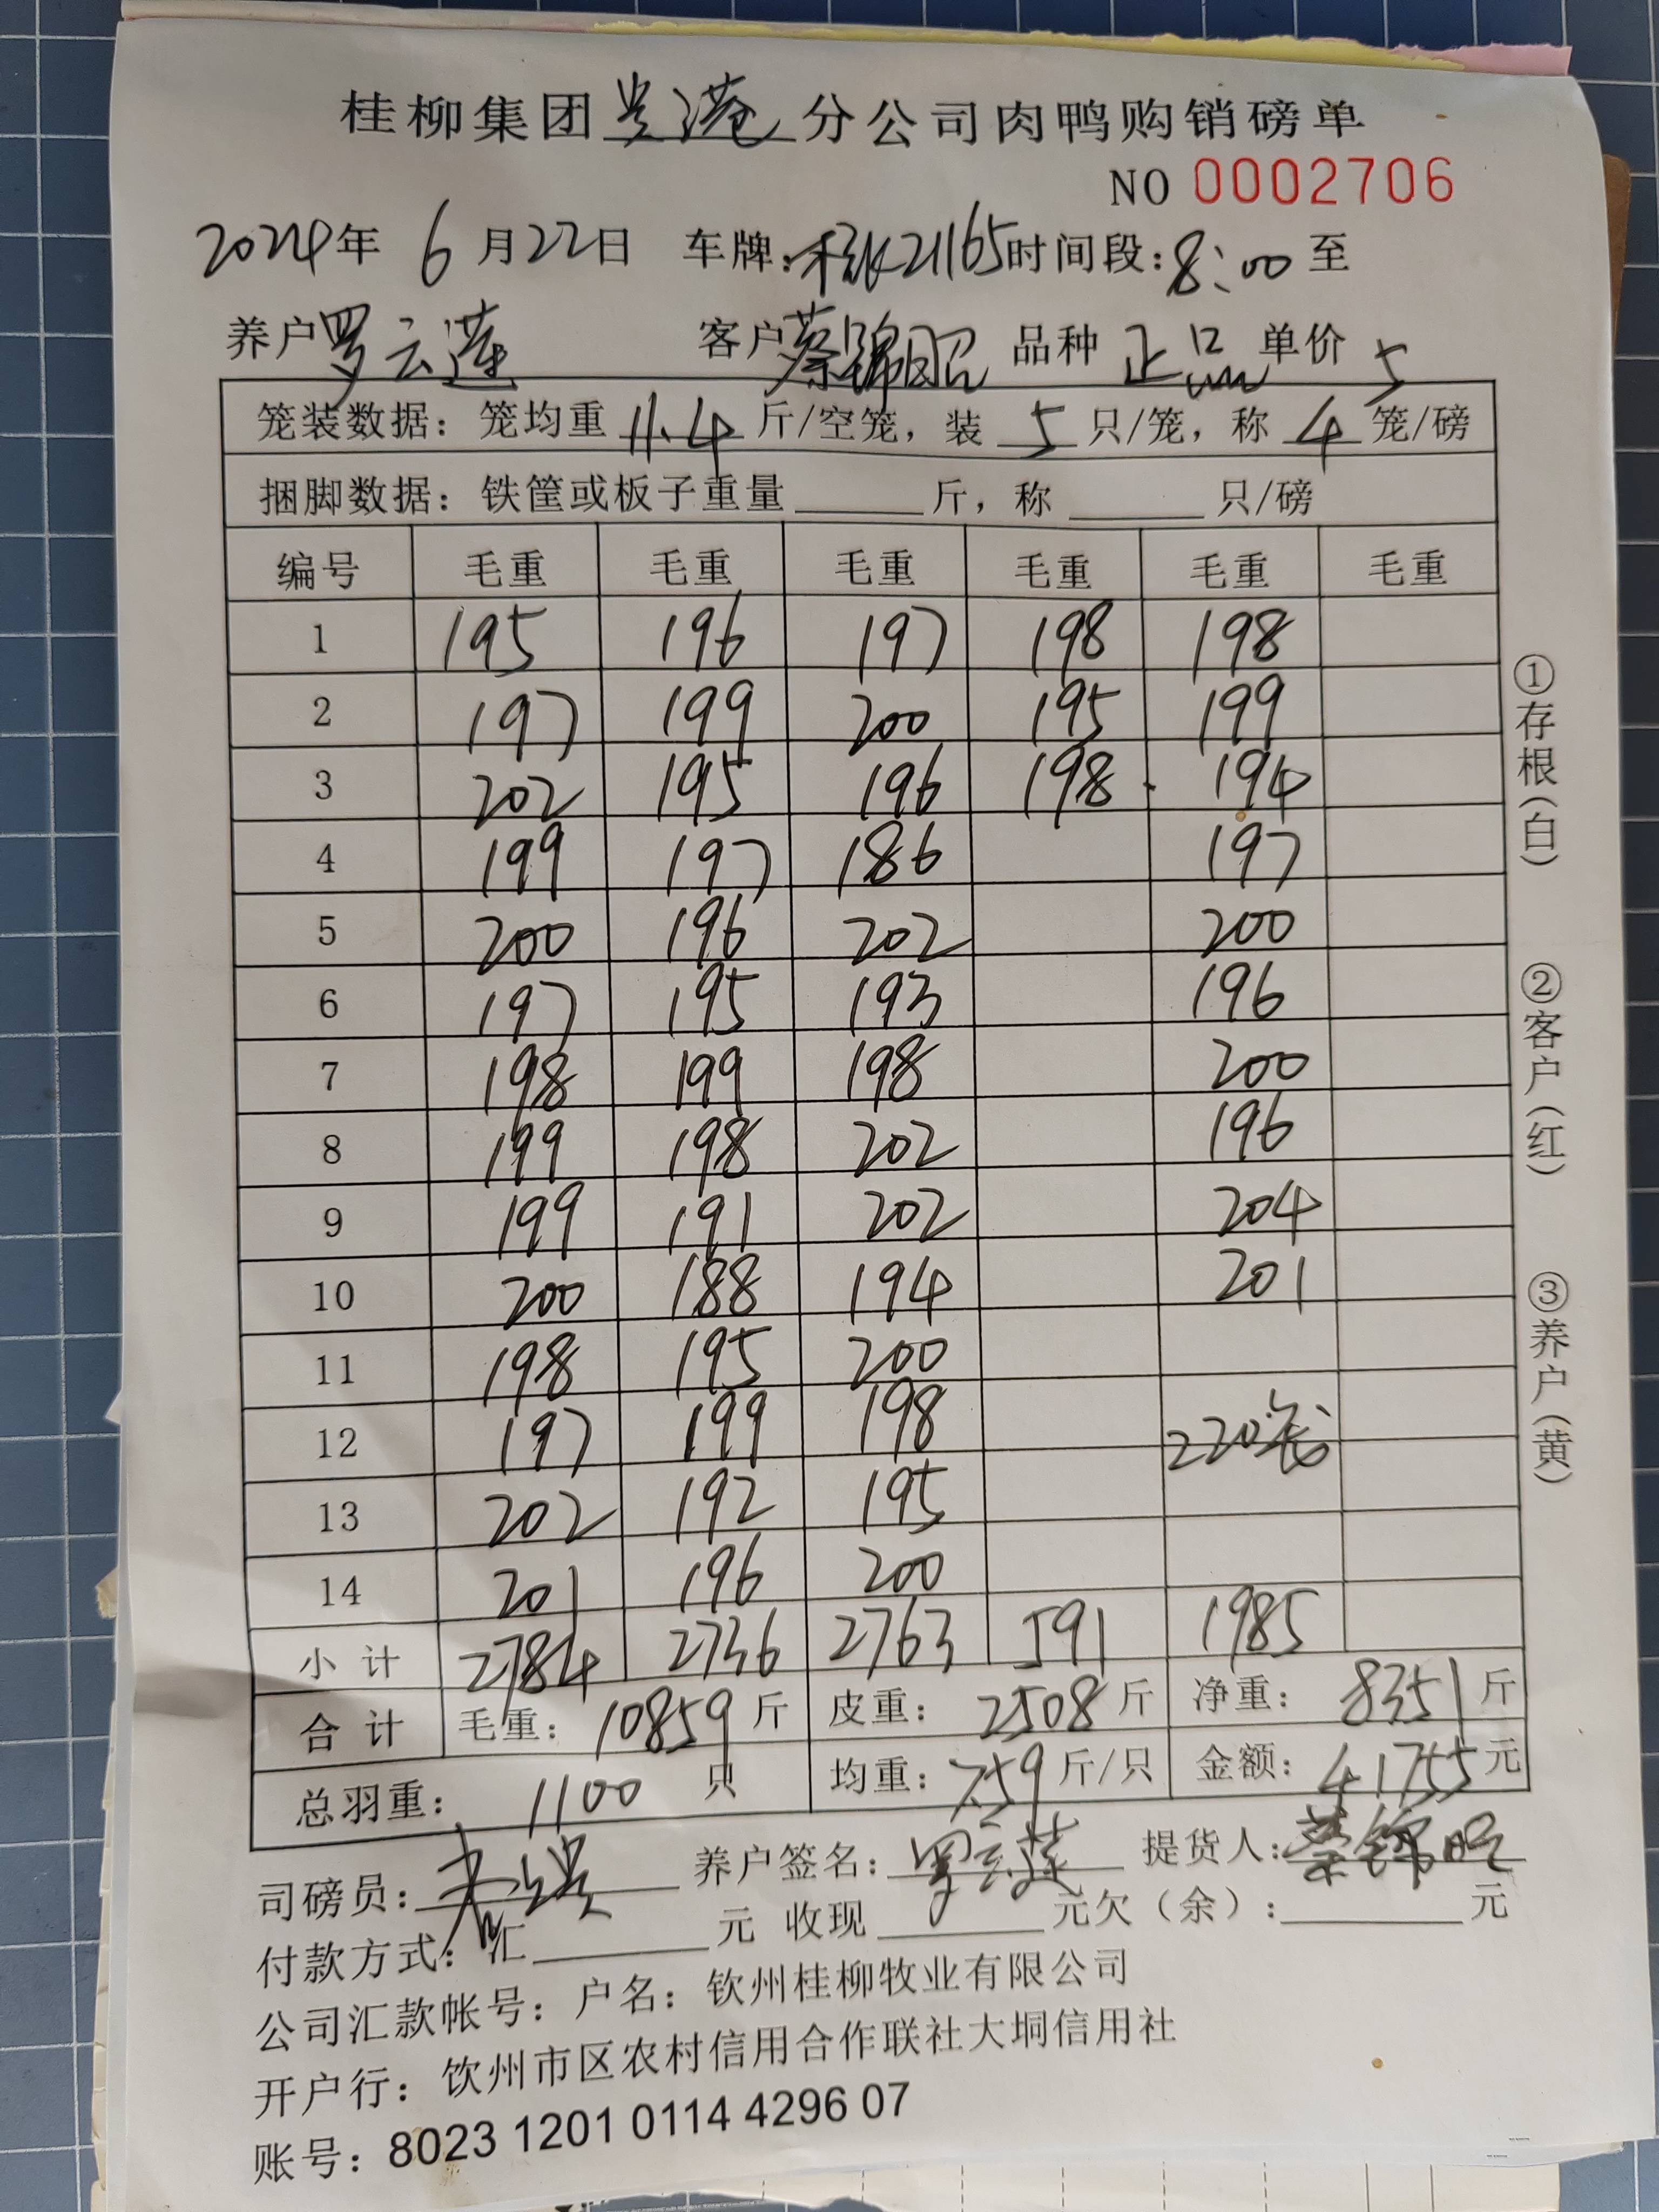 桂柳集团贵港分公司肉鸭购销磅单
NO 0002706
2024年 6月22日 车牌:21165时间段:8:00至
养户罗云莲 客户蔡锦昭 品种 正品 单价 5
笼装数据：笼均重 11.4 斤/空笼，装 5 只/笼，称 4 笼/磅
捆脚数据：铁筐或板子重量 斤，称 只/磅
编号 毛重 毛重 毛重 毛重 毛重 毛重
1 195 196 197 198 198
2 197 199 200 195 199
3 202 195 196 198 194
4 199 197 186 197
5 200 196 202 200
6 197 195 193 196
7 198 199 198 200
8 199 198 202 196
9 199 191 202 204
10 200 188 194 201
11 198 195 200
12 197 199 198 220笼
13 202 192 195
14 201 196 200
小计 2784 2736 2763 591 1985
合计 毛重：10859斤 皮重：2508斤 净重：8351斤
总羽重：1100 只 均重：7.59斤/只 金额：41755元
司磅员： 养户签名：罗云莲 提货人：蔡锦昭
付款方式：汇 元 收现 元欠（余）： 元
公司汇款帐号：户名：钦州桂柳牧业有限公司
开户行：钦州市区农村信用合作联社大垌信用社
账号：8023 1201 0114 4296 07
①存根（白） ②客户（红） ③养户（黄）